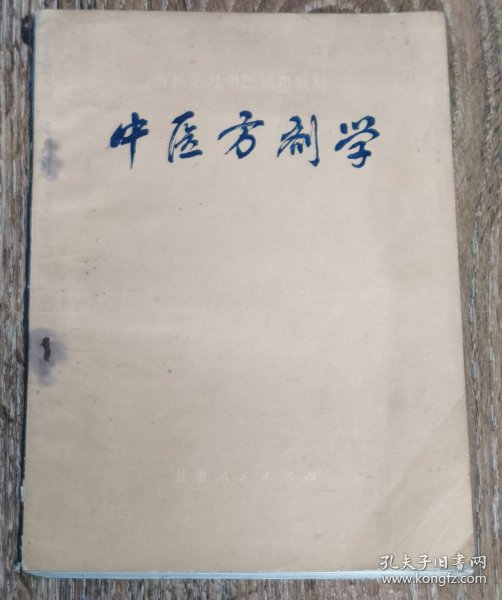 西医学习中医试用教材
中医方剂学
甘肃人民出版社
孔夫子旧书网
www.kongfz.com